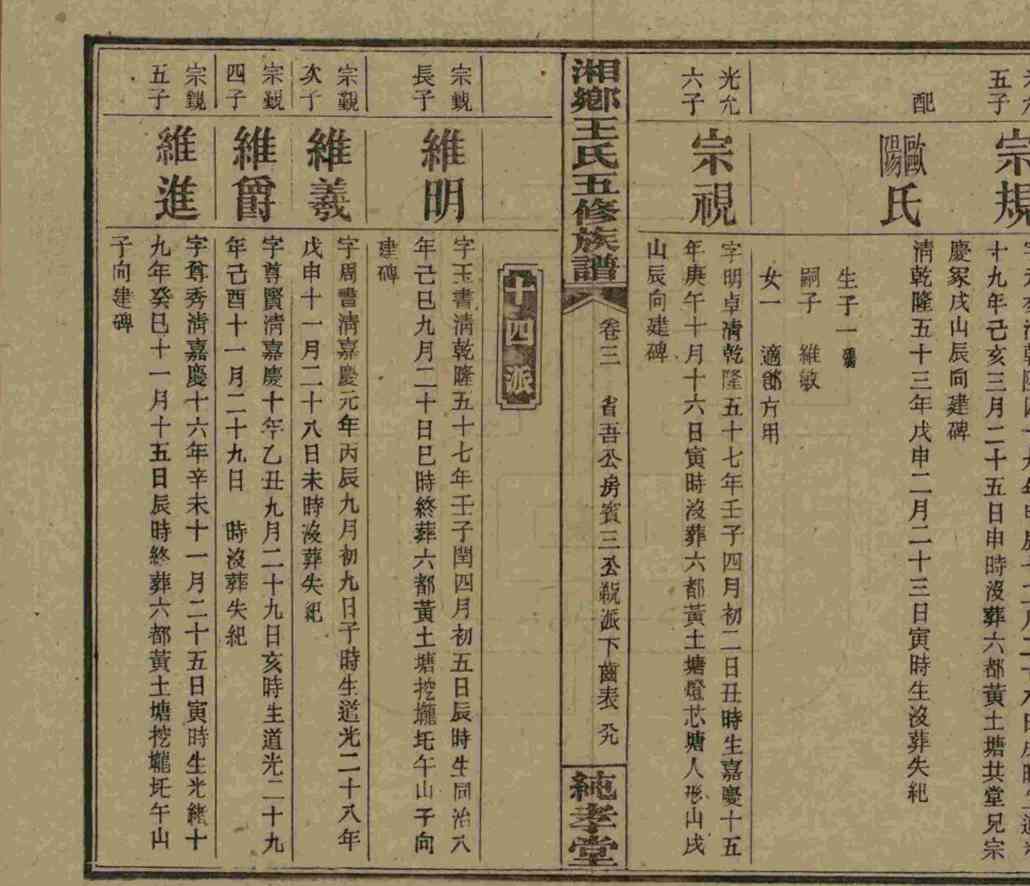 五子
宗規
十九年己亥三月二十五日申時沒葬六都黃土塘共堂兄宗
慶冢戌山辰向建碑
配
歐陽氏
清乾隆五十三年戊申二月二十三日寅時生沒葬失紀
生子一
嗣子 維敏
女一 適鄒方用
光允
六子
宗視
字明卓清乾隆五十七年壬子四月初二日丑時生嘉慶十五
年庚午十月十六日寅時沒葬六都黃土塘燈芯塘人形山戌
山辰向建碑
湘鄉王氏五修族譜
卷三 省吾公房賓三公 派下齒表
純孝堂
四派
宗覲
長子
維明
字玉書清乾隆五十七年壬子閏四月初五日辰時生同治八
年己巳九月二十日巳時終葬六都黃土塘挖壠坵午山子向
建碑
宗覲
次子
維義
字周書清嘉慶元年丙辰九月初九日子時生道光二十八年
戊申十一月二十八日未時沒葬失紀
宗覲
四子
維爵
字尊賢清嘉慶十年乙丑九月二十九日亥時生道光二十九
年己酉十一月二十九日 時沒葬失紀
宗覲
五子
維進
字尊秀清嘉慶十六年辛未十一月二十五日寅時生光緒十
九年癸巳十一月十五日辰時終葬六都黃土塘挖壠坵午山
子向建碑